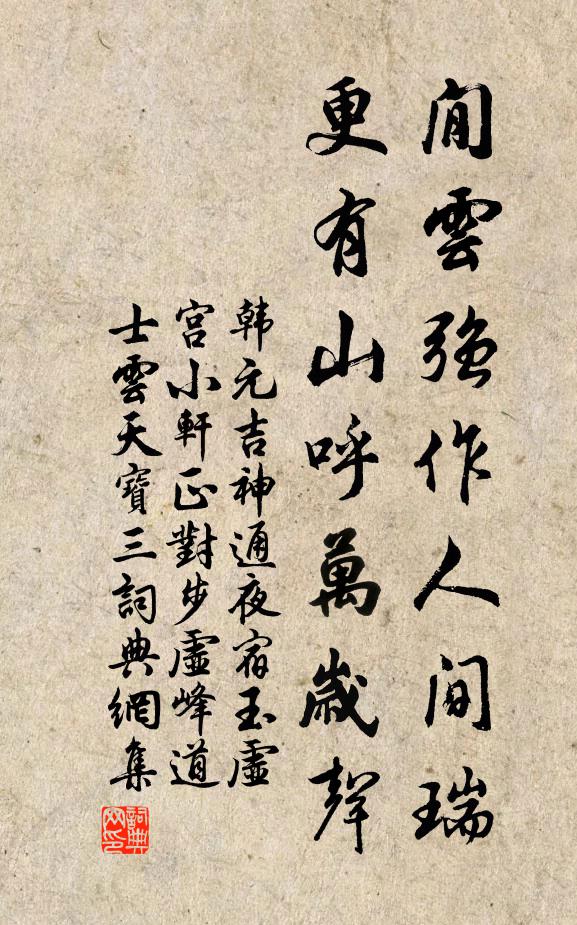 閒雲強作人間瑞
更有山呼萬歲聲
韩元吉神通夜宿玉虛
宫小軒正對步虛峰道
士雲天寶三詞典網集
詞典网印